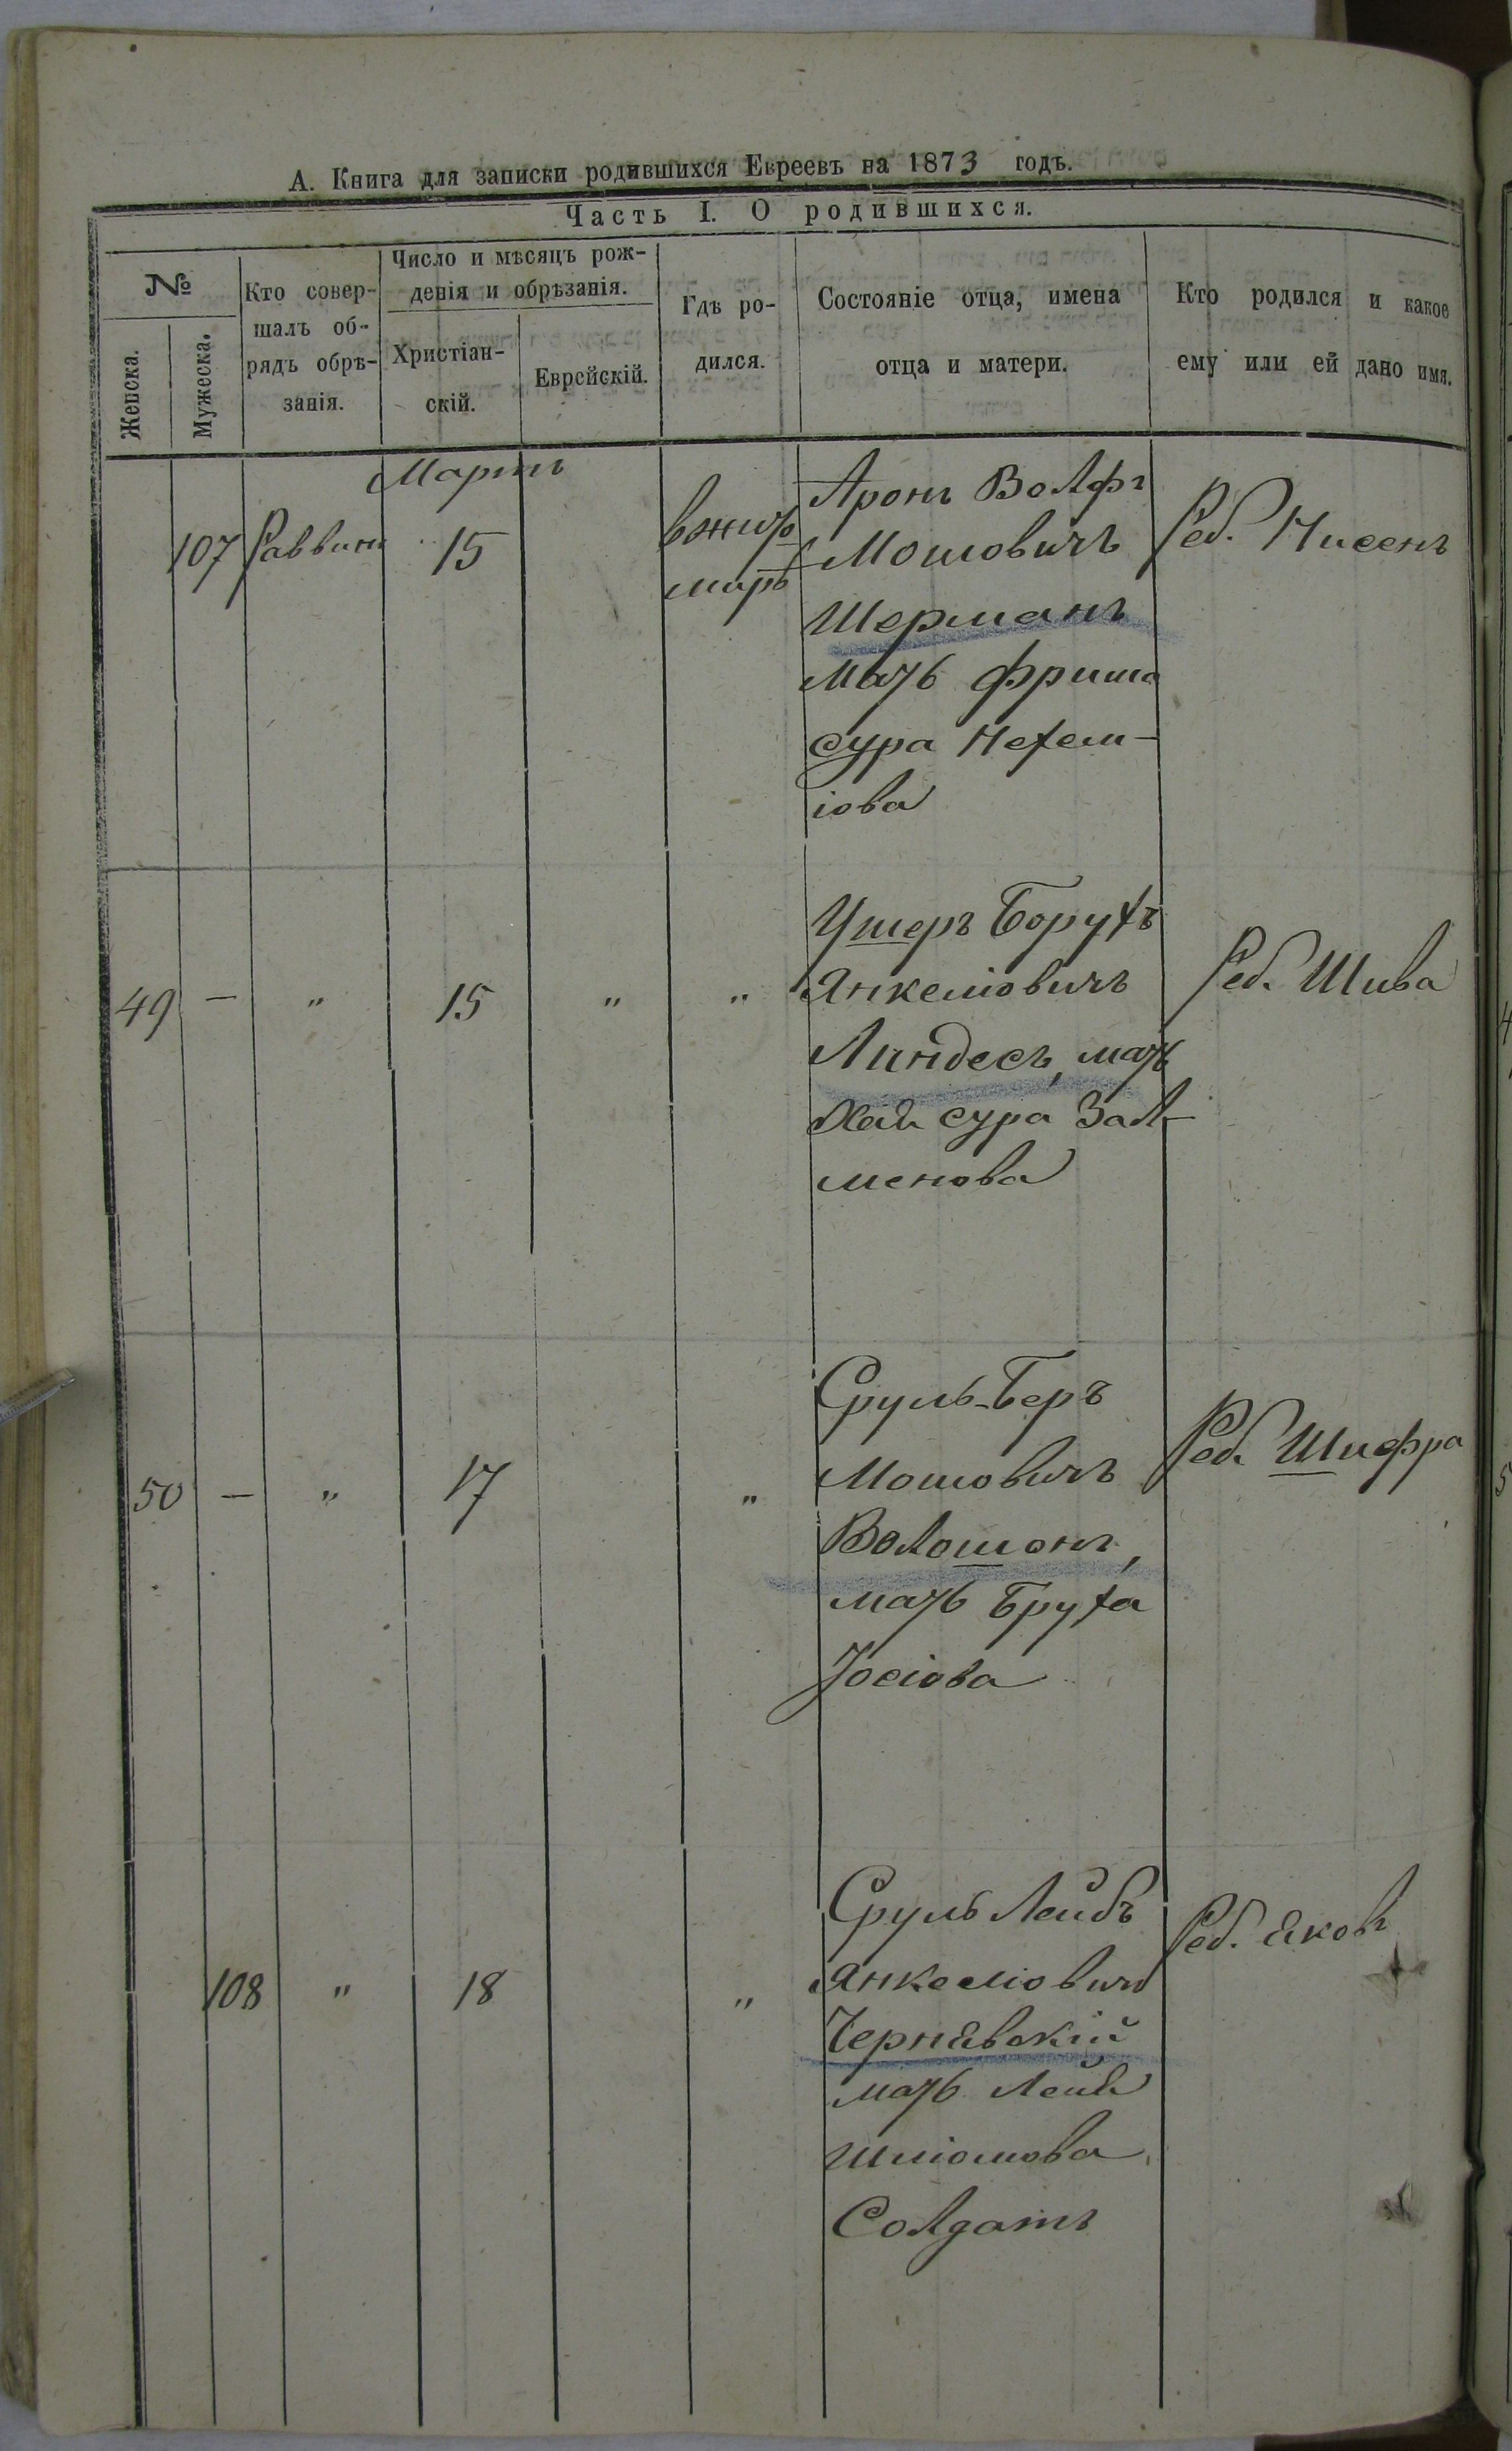 А. Книга для записки родившихся Евреевъ на 1873 годъ.
Часть I. О родившихся.
№
Женска.
Мужеска.
Кто совер-
шалъ об-
рядъ обрѣ-
занія.
Число и мѣсяцъ рож-
денія и обрѣзанія.
Христіан-
скій.
Еврейскій.
Гдѣ ро-
дился.
Состояніе отца, имена
отца и матери.
Кто родился и какое
ему или ей дано имя.
Мартъ
107 Раввинъ 15
Аронъ Волфъ
Мошовичъ
Шерманъ
мать Фрима
сура Нехем-
іова
Реб. Нисенъ
49 — " 15 " "
Ушеръ Борухъ
Янкеліовичъ
Линдесъ, мать
Хая сура Зал-
менова
Реб. Шива
50 — " 17 "
Сруль-Беръ
Мошовичъ
Волошонъ,
мать Бруха
Іосіова
Реб. Шифра
108 " 18 "
Сруль Лейбъ
Янкеліовичъ
Чернявскій
мать Лея
Шліомова
Солдатъ
Реб. Яковъ